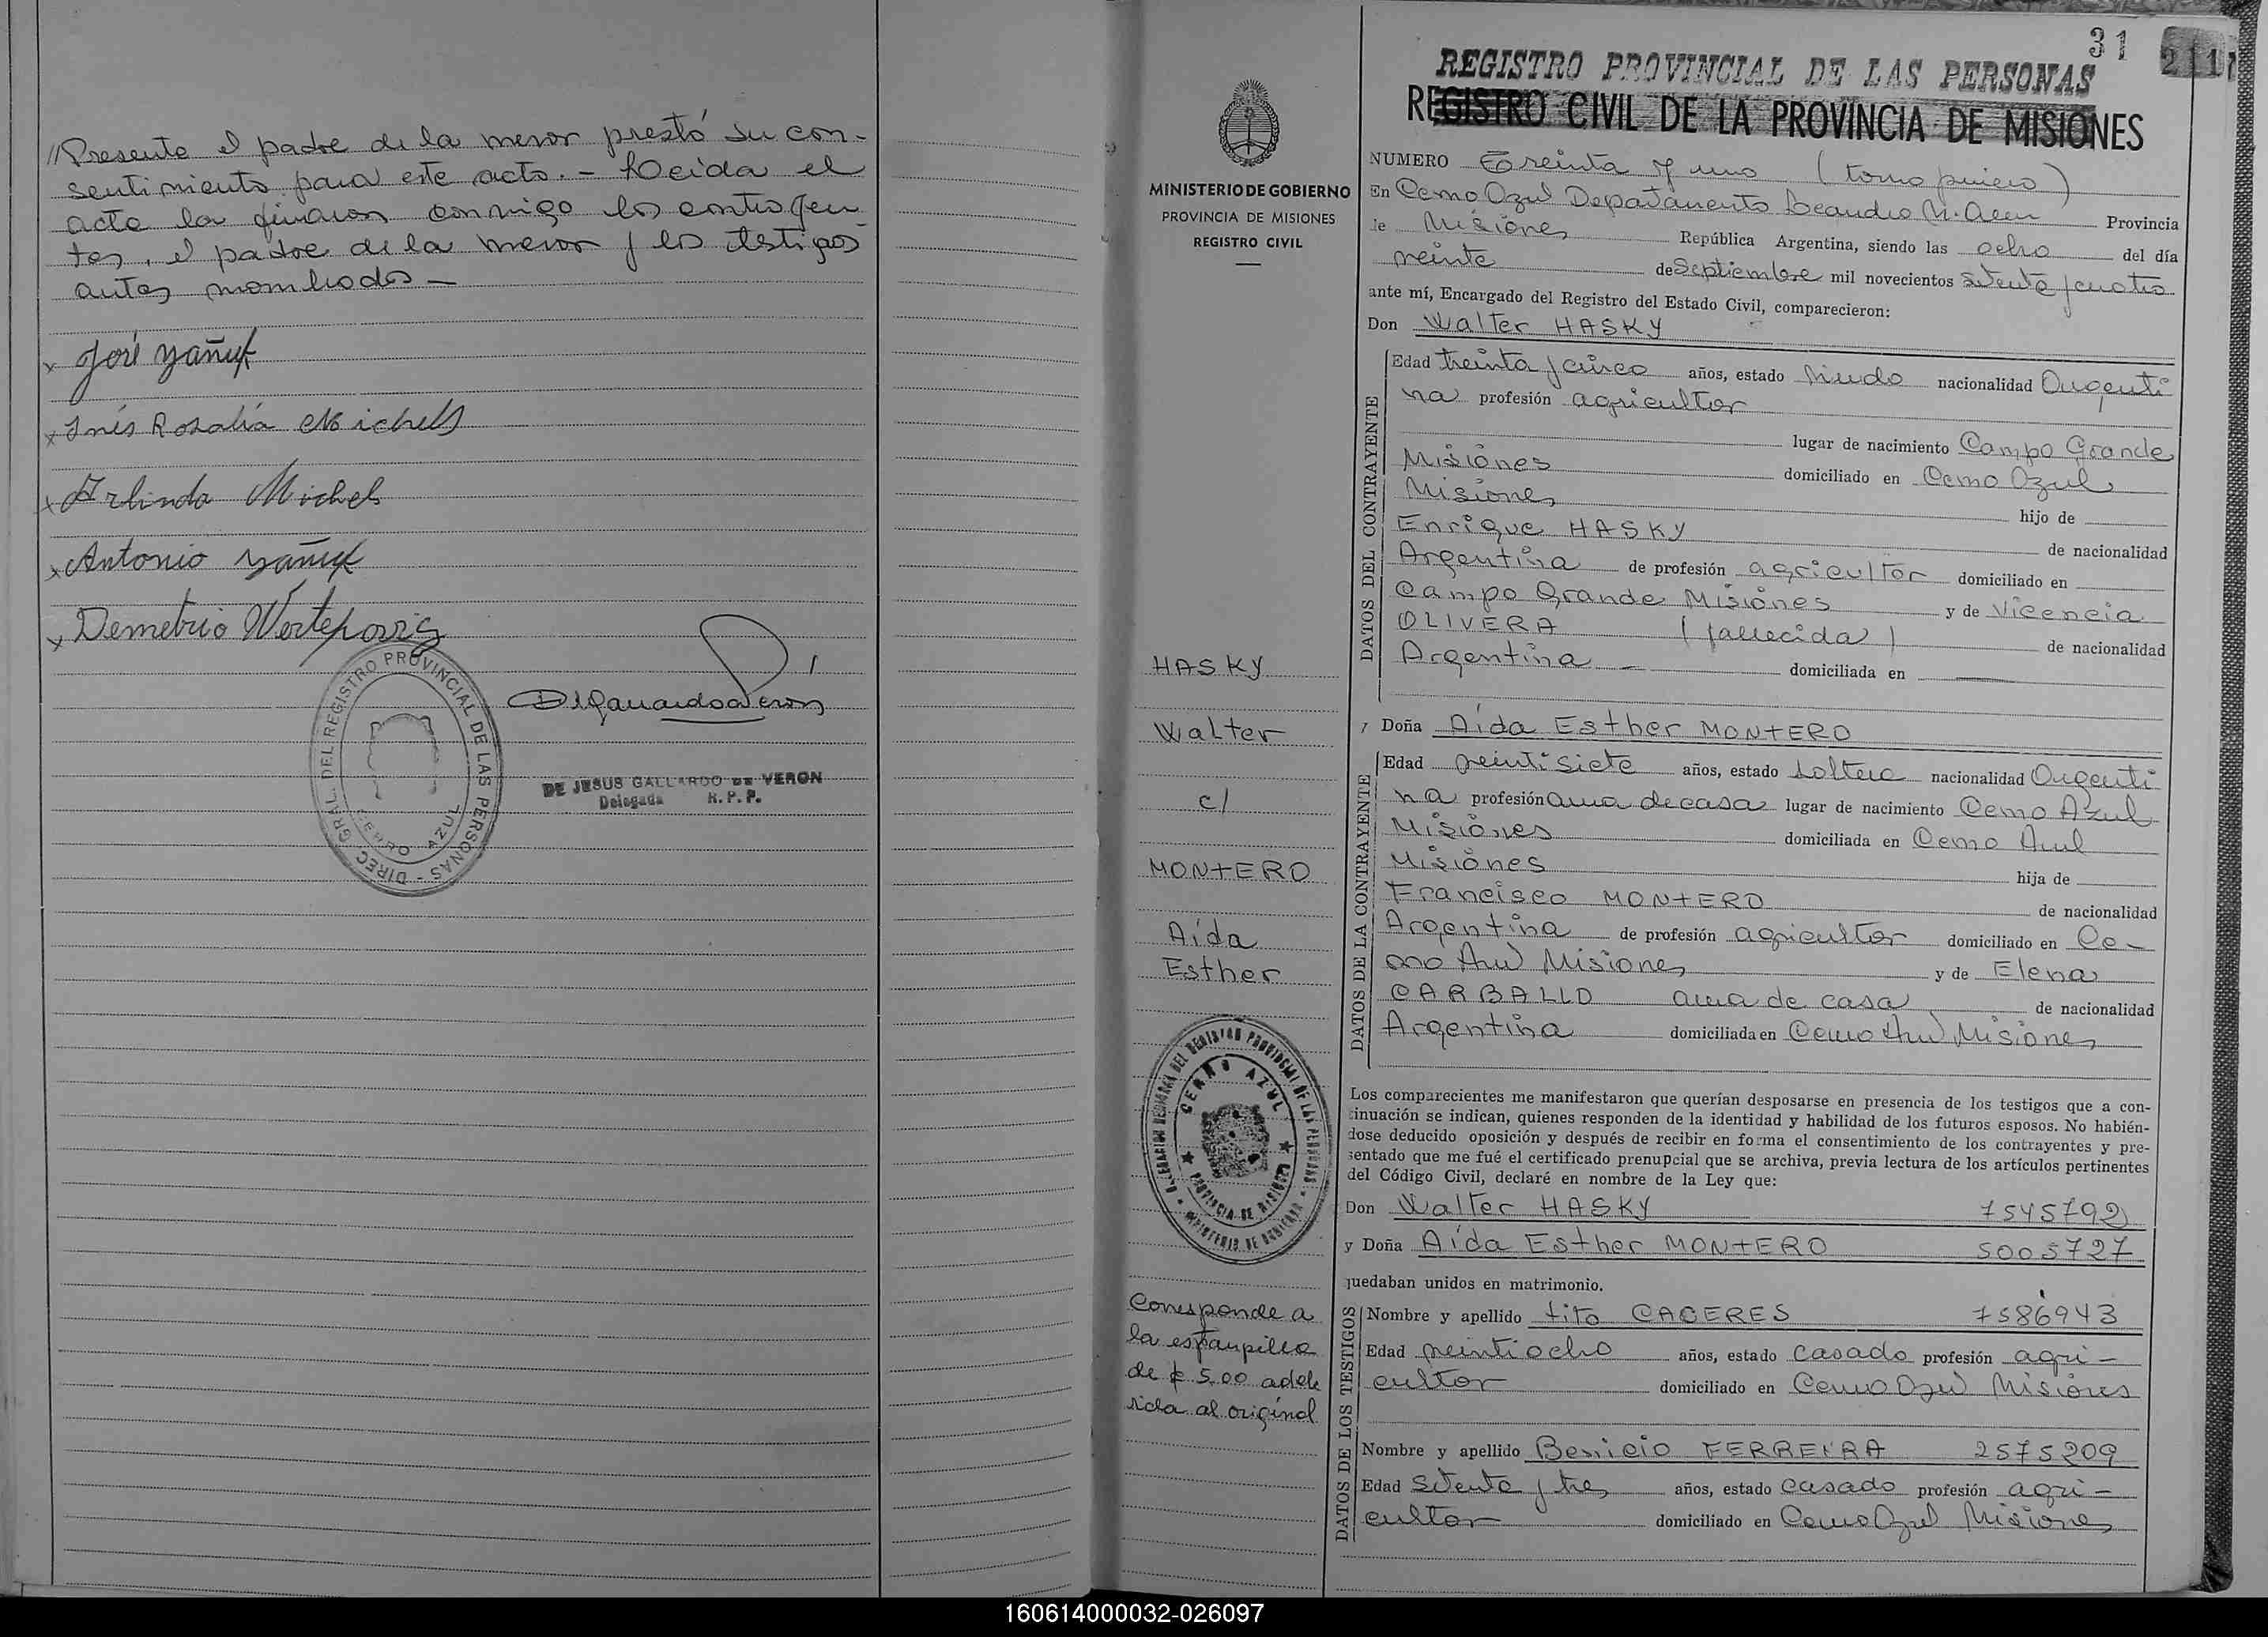 //Presente el padre de la menor prestó su con-
sentimiento para este acto. - Leida el
acta la firman conmigo los contrayen
tes, el padre de la menor y los testigos
antes nombrados -
x José Yañuk
x Inés Rosalía Michels
x Arlindo Michels
x Antonio Yañuk
x Demetrio
DIREC. GRAL. DEL REGISTRO PROVINCIAL DE LAS PERSONAS -
CERRO AZUL
DE JESUS GALLARDO DE VERON
Delegada R. P. P.
31
211
REGISTRO PROVINCIAL DE LAS PERSONAS
REGISTRO CIVIL DE LA PROVINCIA DE MISIONES
MINISTERIO DE GOBIERNO
PROVINCIA DE MISIONES
REGISTRO CIVIL
HASKY
Walter
c/
MONTERO
Aída
Esther
DELEGACION DEL REGISTRO PROVINCIAL DE LAS PERSONAS
CERRO AZUL
PROVINCIA DE MISIONES
MINISTERIO DE GOBIERNO
Corresponde a
la estampilla
de $ 5,00 adhe
rida al original
NUMERO Treinta y uno (tomo primero)
En Cerro Azul Departamento Leandro N. Alem Provincia
de Misiones República Argentina, siendo las ocho del día
veinte de Septiembre mil novecientos setenta y cuatro
ante mí, Encargado del Registro del Estado Civil, comparecieron:
Don Walter HASKY
DATOS DEL CONTRAYENTE
Edad treinta y cinco años, estado viudo nacionalidad Argenti
na profesión agricultor
lugar de nacimiento Campo Grande
Misiones domiciliado en Cerro Azul
Misiones hijo de
Enrique HASKY de nacionalidad
Argentina de profesión agricultor domiciliado en
Campo Grande Misiones y de Vicencia
OLIVERA (fallecida) de nacionalidad
Argentina - domiciliada en
y Doña Aída Esther MONTERO
DATOS DE LA CONTRAYENTE
Edad veintisiete años, estado soltera nacionalidad Argenti
na profesión ama de casa lugar de nacimiento Cerro Azul
Misiones domiciliada en Cerro Azul
Misiones hija de
Francisco MONTERO de nacionalidad
Argentina de profesión agricultor domiciliado en Ce-
rro Azul Misiones y de Elena
CARBALLO ama de casa de nacionalidad
Argentina domiciliada en Cerro Azul Misiones
Los comparecientes me manifestaron que querían desposarse en presencia de los testigos que a con-
tinuación se indican, quienes responden de la identidad y habilidad de los futuros esposos. No habién-
dose deducido oposición y después de recibir en forma el consentimiento de los contrayentes y pre-
sentado que me fué el certificado prenupcial que se archiva, previa lectura de los artículos pertinentes
del Código Civil, declaré en nombre de la Ley que:
Don Walter HASKY 7545792
y Doña Aída Esther MONTERO 5005727
quedaban unidos en matrimonio.
DATOS DE LOS TESTIGOS
Nombre y apellido tito CACERES 7586943
Edad veintiocho años, estado casado profesión agri-
cultor domiciliado en Cerro Azul Misiones
Nombre y apellido Benicio FERREIRA 2575209
Edad setenta y tres años, estado casado profesión agri-
cultor domiciliado en Cerro Azul Misiones
160614000032-026097